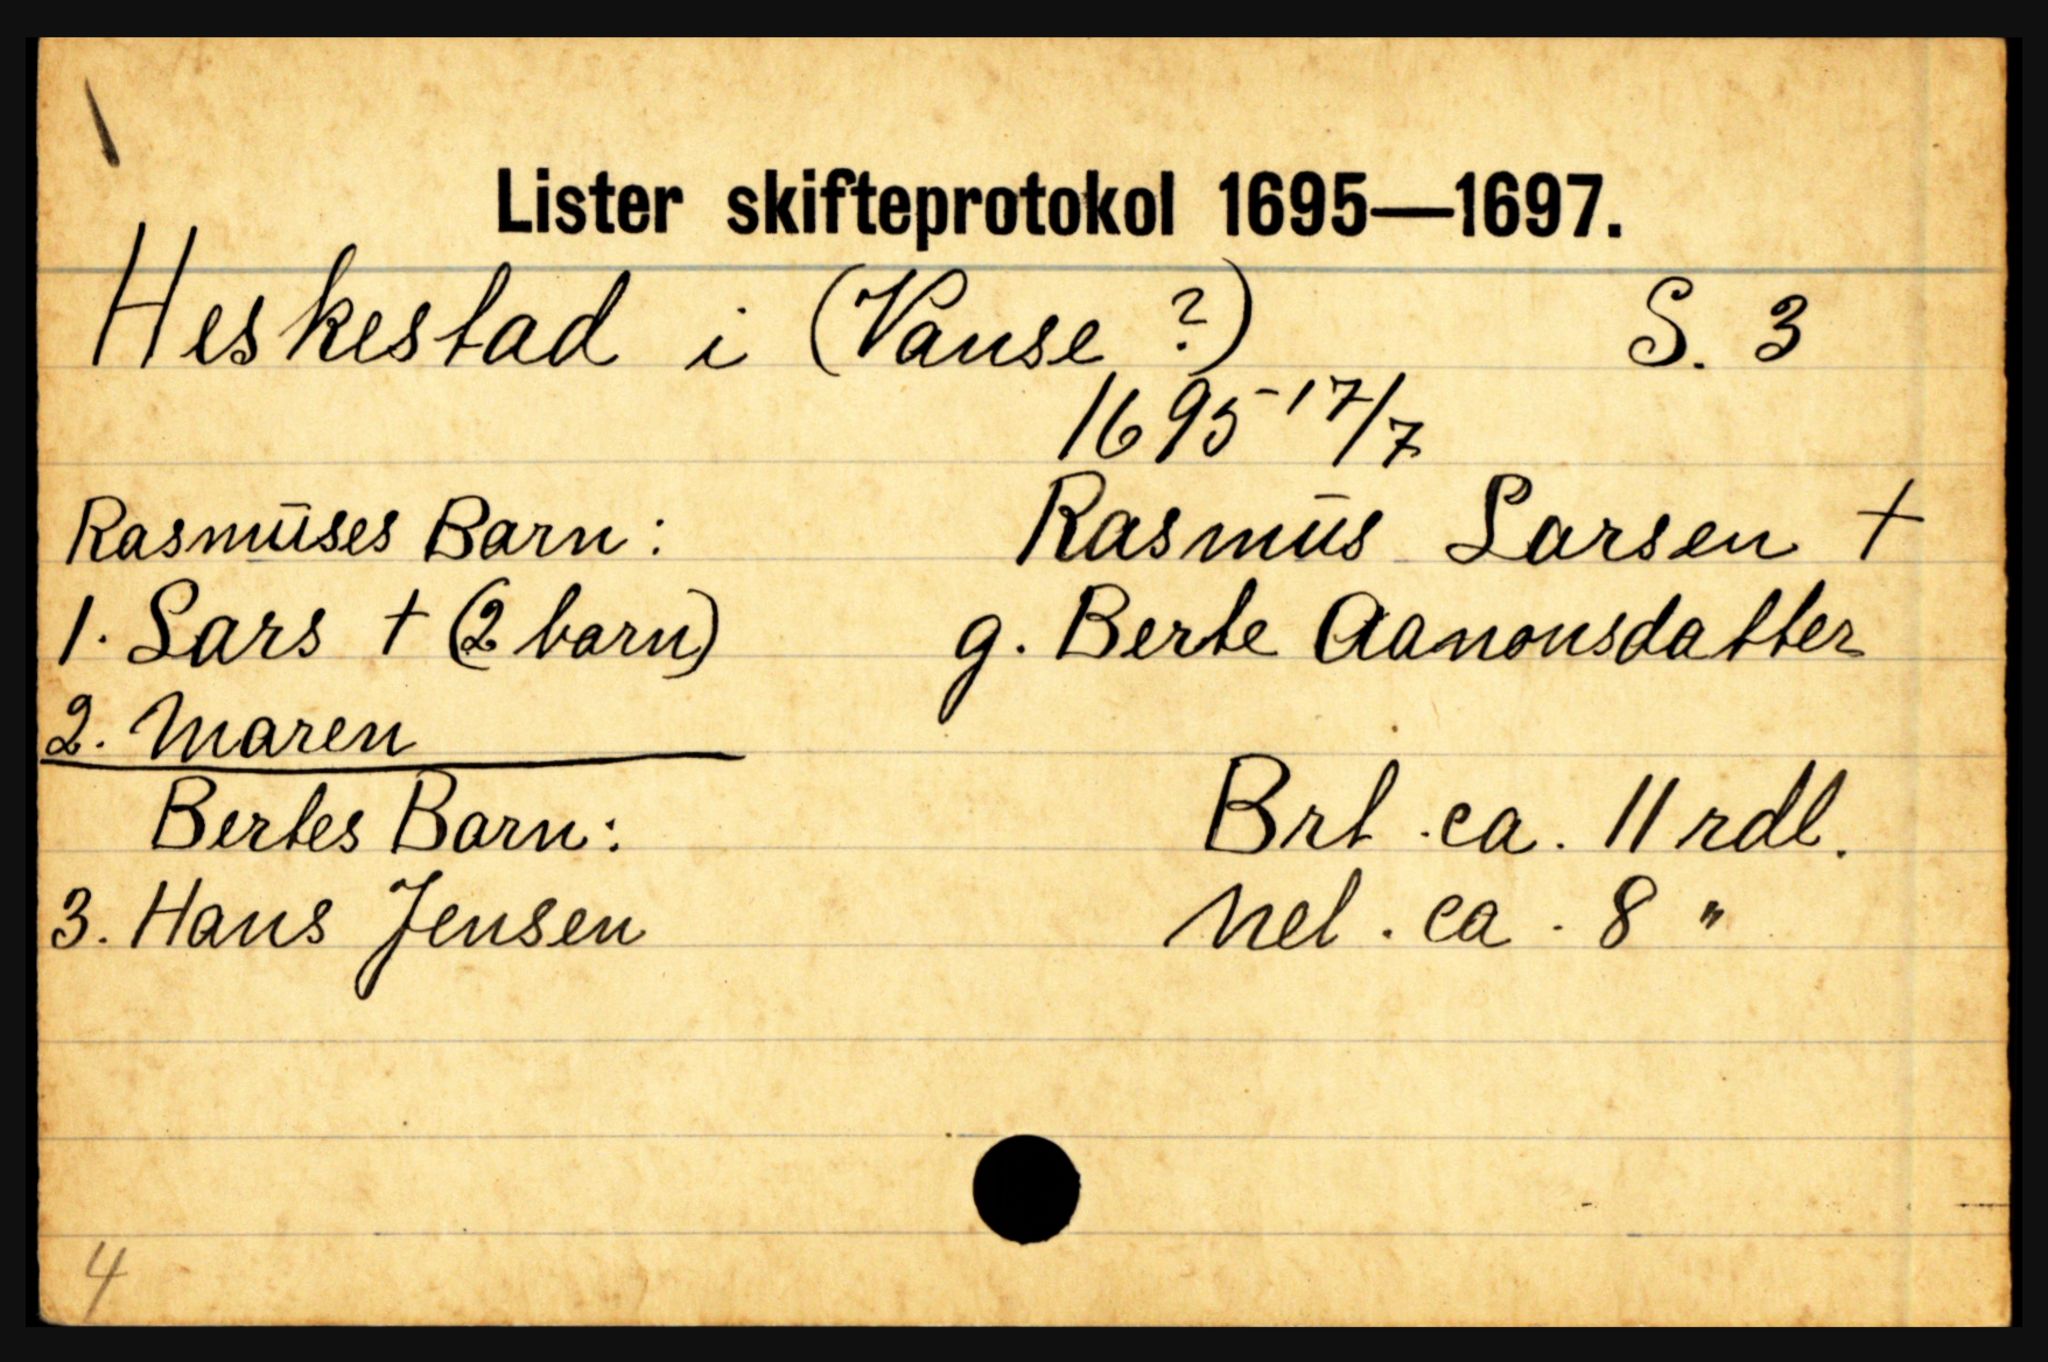 Lister skifteprotokol 1695—1697.
Heskestad i (Vanse ?) S. 3
1695 17/7
Rasmus Larsen +
g. Berte Aanonsdatter
Brt. ca. 11 rdl.
Net. ca. 8 "
Rasmuses Barn:
1. Lars + (2 barn)
2. Maren
Bertes Barn:
3. Hans Jensen
4